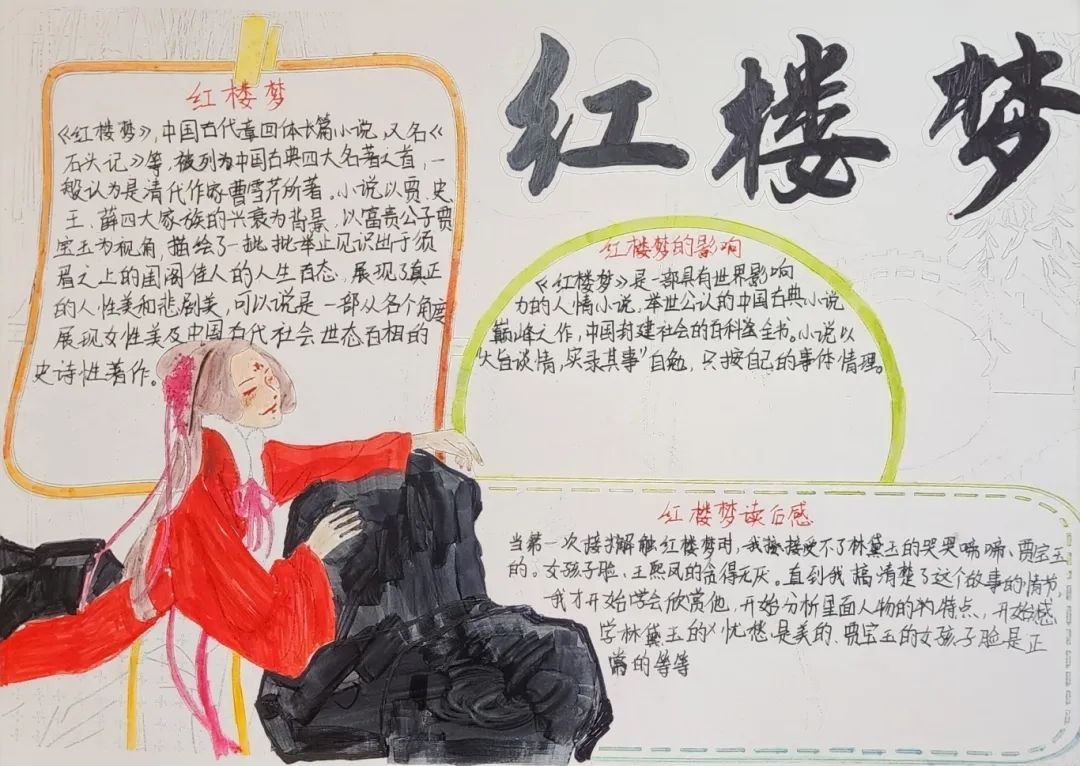 红楼梦
红楼梦
《红楼梦》,中国古代章回体长篇小说,又名《
石头记》等,被列为中国古典四大名著之首,一
般认为是清代作家曹雪芹所著。小说以贾、史、
王、薛四大家族的兴衰为背景,以富贵公子贾
宝玉为视角,描绘了一批批举止见识出于须
眉之上的闺阁佳人的人生百态,展现了真正
的人性美和悲剧美,可以说是一部从各个角度
展现女性美及中国古代社会世态百相的
史诗性著作。
红楼梦的影响
《红楼梦》是一部具有世界影响
力的人情小说,举世公认的中国古典小说
巅峰之作,中国封建社会的百科全书。小说以
"大旨谈情,实录其事"自勉,只按自己的事体情理。
红楼梦读后感
当第一次接触红楼梦时,我接受不了林黛玉的哭哭啼啼、贾宝玉
的。女孩子脸、王熙凤的贪得无厌。直到我搞清楚了这个故事的情节,
我才开始学会欣赏他,开始分析里面人物的特点,开始感
学林黛玉的忧愁是美的、贾宝玉的女孩子脸是正
常的等等